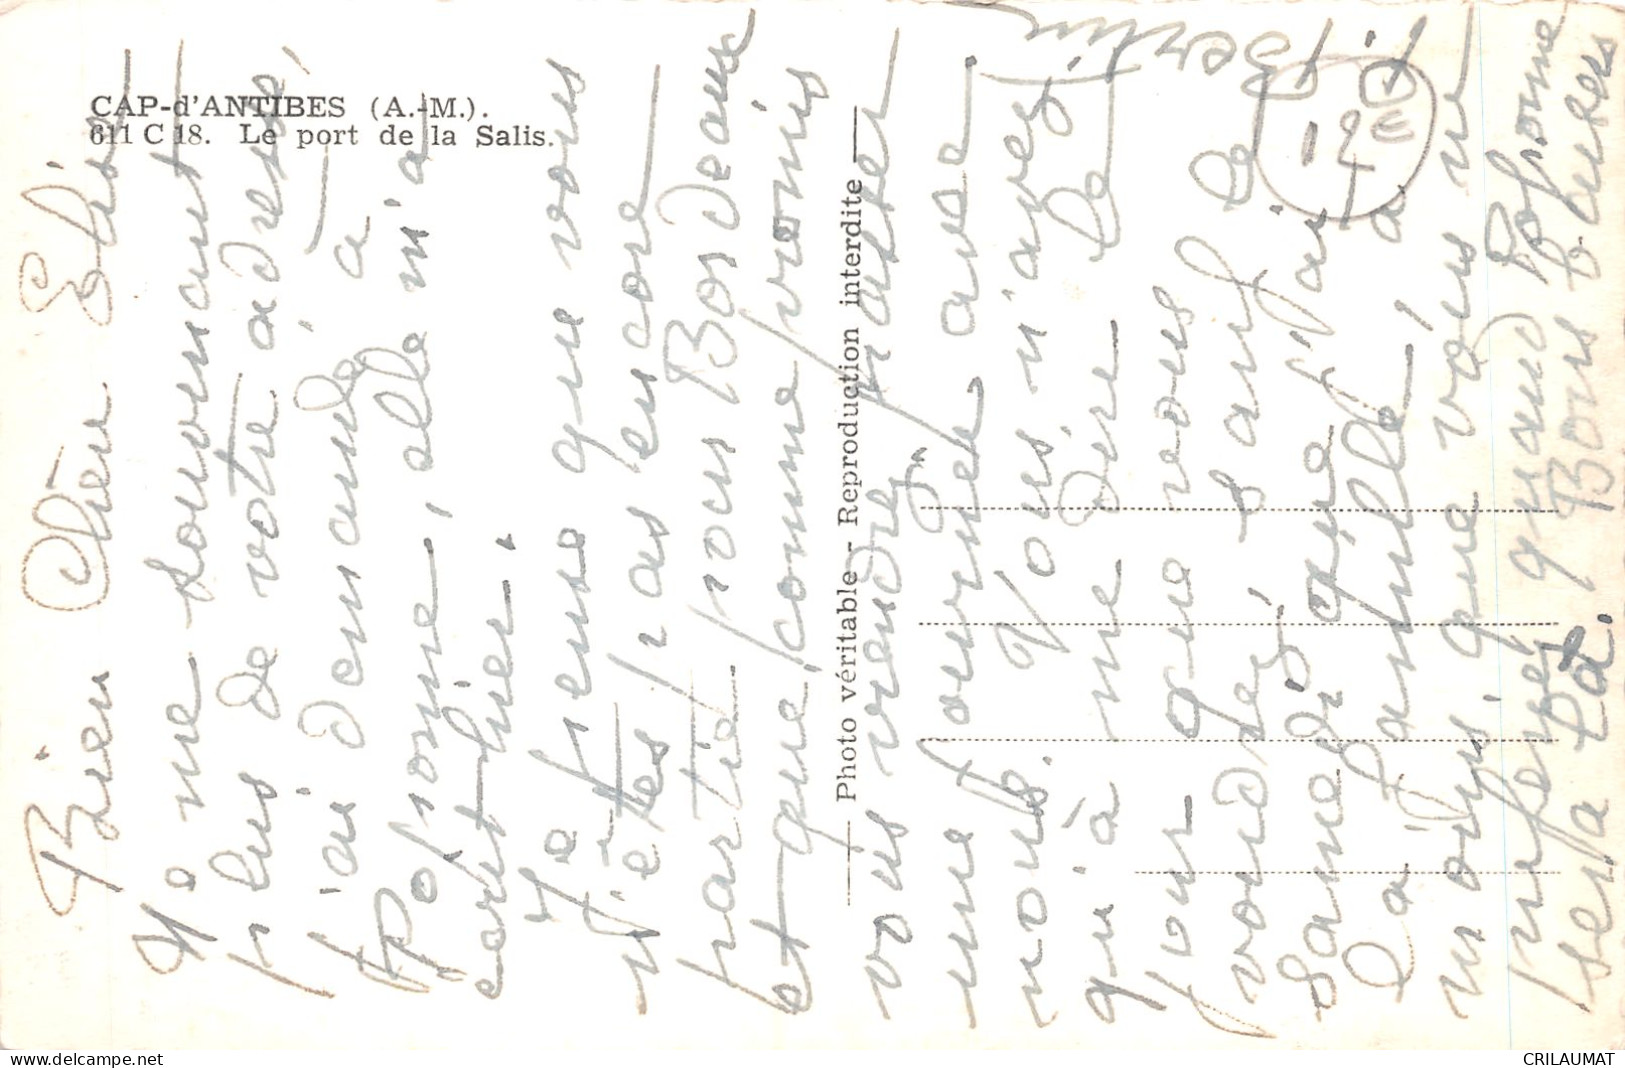 CAP-d'ANTIBES (A.-M.).
611 C 18. Le port de la Salis.
Photo véritable - Reproduction interdite
Bien Chère
Ne me souvenant
plus de votre adresse,
j'ai demandé à
Poponne, elle m'a
écrit hier.
Je pense que vous
n'êtes pas encore
partie pour Bordeaux
et que, comme promis
vous viendrez passer
une journée avec
nous. Vous n'avez
qu'à me dire le
jour que vous
voudrez, sauf le
samedi que j'ai
la famille, à
moins que vous ne
préfériez quand Poponne
sera là. Bons baisers
12 €
CRILAUMAT